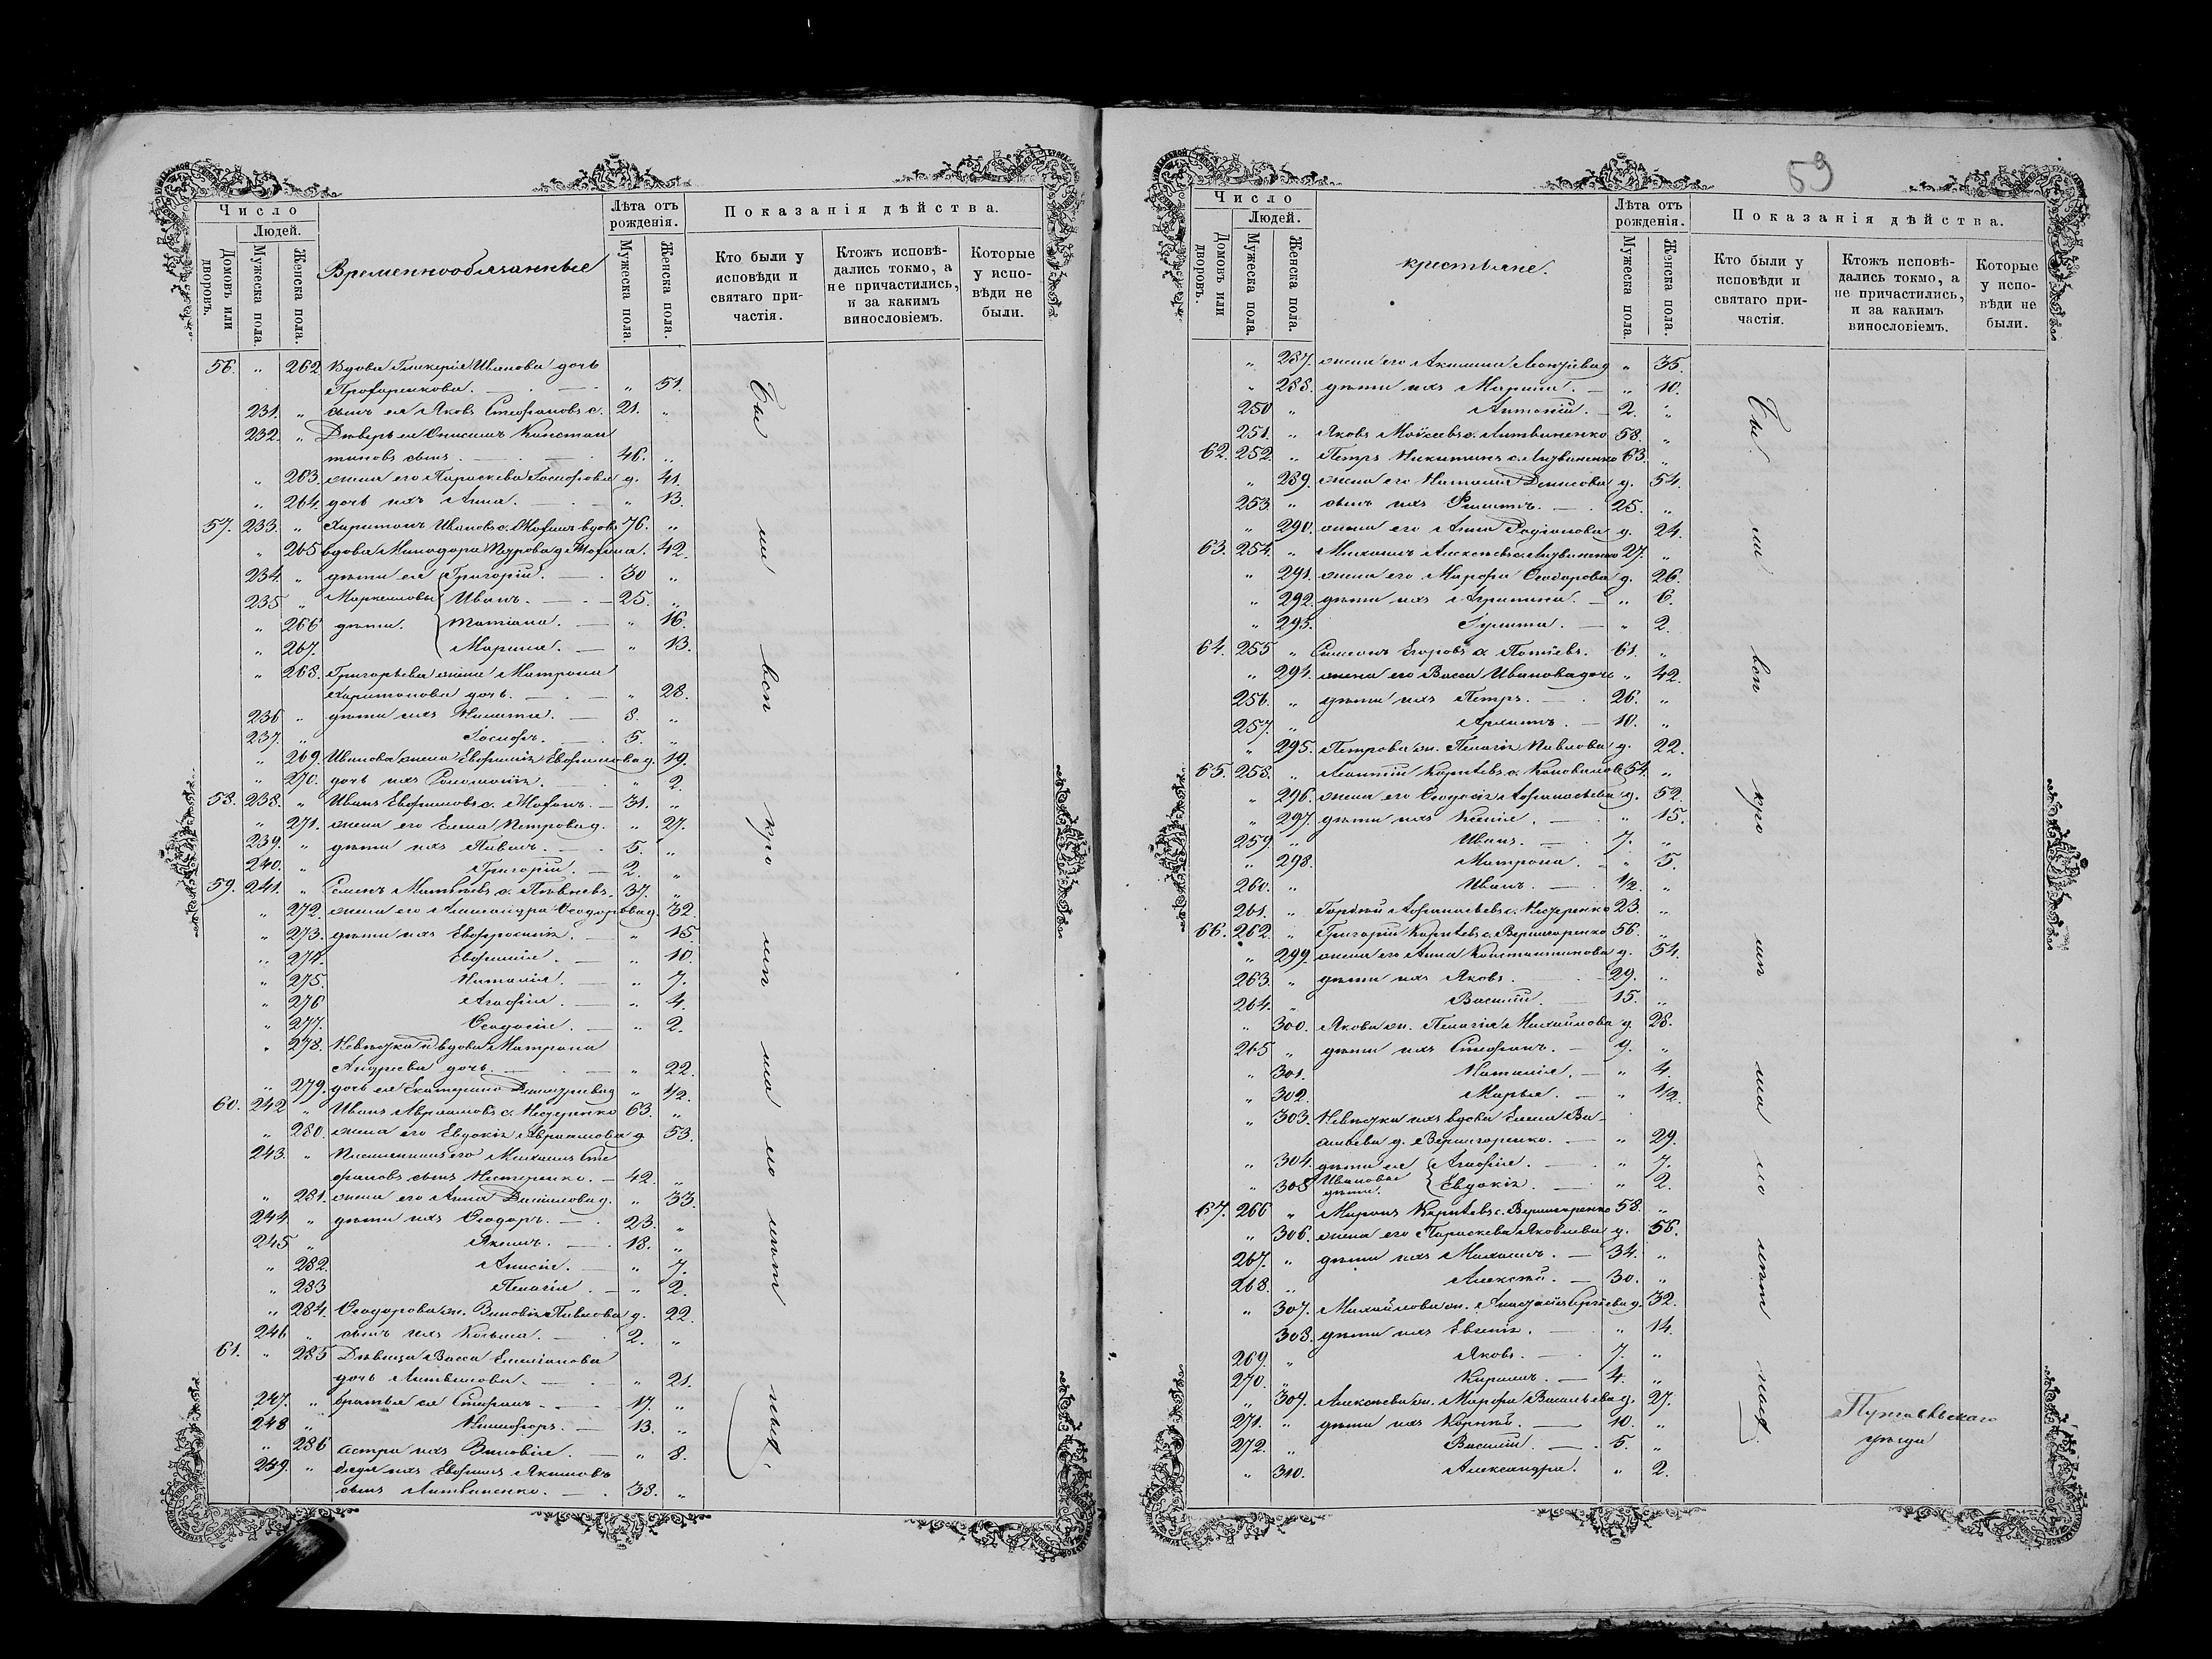 Число
Людей.
Домовъ или дворовъ.
Мужеска пола.
Женска пола.
Временнообязанные
Лѣта отъ рожденія.
Мужеска пола.
Женска пола.
Показанія дѣйства.
Кто были у исповѣди и святаго причастія.
Ктожъ исповѣдались токмо, а не причастились, и за какимъ винословіемъ.
Которые у исповѣди не были.
56. " 262 Вдова Гликерія Иванова дочь
" 51.
231. " сынъ ея Яковъ Стефановъ с. 21. "
232. " Деверь ея Онисимъ Констан
тиновъ сынъ. 46. "
" 263. жена его Параскева Іосифова д. 41.
" 264. дочь ихъ Анна. " 13.
57. 233. " Харитонъ Ивановъ с. вдовъ 76. "
" 265 вдова Минодора д. 42.
234. " дѣти ея Григорій. 30 "
235 " Иванъ. 25. "
" 266 дѣти. Татіана. " 16.
" 267. Марина. " 13.
" 268. Григорьева жена Матрона
Харитонова дочь. " 28.
236 " дѣти ихъ Никита. 8. "
237. " Іосифъ. 5. "
" 269. Иванова жена Евфимія Евфимова д. 19.
" 270. дочь ихъ Соломонія. " 2.
58. 238. " Иванъ Евфимовъ с. 31. "
" 271. жена его Елена Петрова д. " 27.
239. " дѣти ихъ Павелъ. 5. "
240. " Григорій. 2. "
59. 241. " Семенъ Матвѣевъ с. 37. "
" 272. жена его Александра Ѳеодорова д. 32.
" 273. дѣти ихъ Евфросинія. " 15.
" 274. Евфимія. " 10.
" 275. Наталія. " 7.
" 276 Агафія. " 4.
" 277. Ѳеодосія. " 2.
" 278. Невѣстка вдова Матрона
Андреева дочь. " 22.
" 279. дочь ея Екатерина Димитріева д " 1/2.
60. 242 " Иванъ Авраамовъ с. Нестеренко 63. "
" 280. жена его Евдокія Авраамова д 53.
243. " Племянникъ его Михаилъ Сте
фановъ сынъ Нестеренко. 42. "
" 281. жена его Анна Данилова д. " 33.
244 " дѣти ихъ Ѳеодоръ. 23. "
245 " Якимъ. 18. "
" 282. Анисія. " 7.
" 283 Пелагія. " 2.
" 284. Ѳеодорова ж. Зиновія Павлова д. 22.
246 " сынъ ихъ Козьма. 2. "
61. " 285 Дѣвица Васса Емиліанова
дочь Литвинова. " 21.
247. " братья ея Стефанъ. 17. "
248 " Никифоръ. 13. "
" 286 сестра ихъ Зиновія. " 8.
249. " дядя ихъ Евфимъ Якимовъ
сынъ Литвиненко. 38. "
59
Число
Людей.
Домовъ или дворовъ.
Мужеска пола.
Женска пола.
крестьяне.
Лѣта отъ рожденія.
Мужеска пола.
Женска пола.
Показанія дѣйства.
Кто были у исповѣди и святаго причастія.
Ктожъ исповѣдались токмо, а не причастились, и за какимъ винословіемъ.
Которые у исповѣди не были.
" 287. жена его Акилина Леонтіева д " 35.
" 288. дѣти ихъ Марина. " 10.
250 " Антоній. 2. "
251. " Яковъ Моисеевъ с. Литвиненко 58. "
62. 252. " Петръ Никитинъ с. Литвиненко 63. "
" 289. жена его Наталія Денисова д. 54.
253. " сынъ ихъ Филиппъ. 25. "
" 290. жена его Анна Родіонова д. 24.
63. 254. " Михаилъ Алексѣевъ с. Литвиненко 27. "
" 291. жена его Марфа Ѳеодорова д. 26.
" 292. дѣти ихъ Агрипина. " 6.
" 293. Іулита. " 2.
64. 255 " Симеонъ Егоровъ с. 61. "
" 294. жена его Васса Иванова дочь " 42.
256. " дѣти ихъ Петръ. 26. "
257. " 10. "
" 295. Петрова ж. Пелагія Павлова д. 22.
65. 258. " Леонтій Корнѣевъ с. Коновалов 54. "
" 296. жена его Ѳеодосія Афанасьева д. 52.
" 297. дѣти ихъ Ксенія. " 15.
259. " Иванъ. 7. "
" 298. Матрона. " 5.
260. " Иванъ. 1/2. "
261. " Гордѣй Афанасьевъ с. Нестеренко 23. "
66. 262. " Григорій Корнѣевъ с. Вернигоренко 56. "
" 299. жена его Анна Константинова д. 54.
263. " дѣти ихъ Яковъ. 29. "
264. " Василій. 15. "
" 300. Якова ж. Пелагія Михайлова д. 28.
265 " дѣти ихъ Стефанъ. 9. "
" 301. Наталія. " 4.
" 302. Марья. " 1/2
" 303. Невѣстка ихъ вдова Елена Ва-
сильева д. Вернигоренко. " 29.
" 304. дѣти ея Агафія. " 7.
" 305 Ивановы дѣти. Евдокія. " 2.
67. 266 " Миронъ Корнѣевъ с. Вернигоренко 58. "
" 306. жена его Параскева Яковлева д. 56.
267. " дѣти ихъ Михаилъ. 34. "
268. " Алексѣй. 30. "
" 307. Михайлова ж. Анастасія Сергіева д. 32.
308. дѣти ихъ Евгенія. " 14.
269. " Яковъ. 7. "
270. " Кириллъ. 4. "
" 309. Алексѣева ж. Марфа Васильева д. 27.
271. " дѣти ихъ Корнѣй. 10. "
272. " Василій. 5. "
" 310. Александра. " 2.
уѣзда